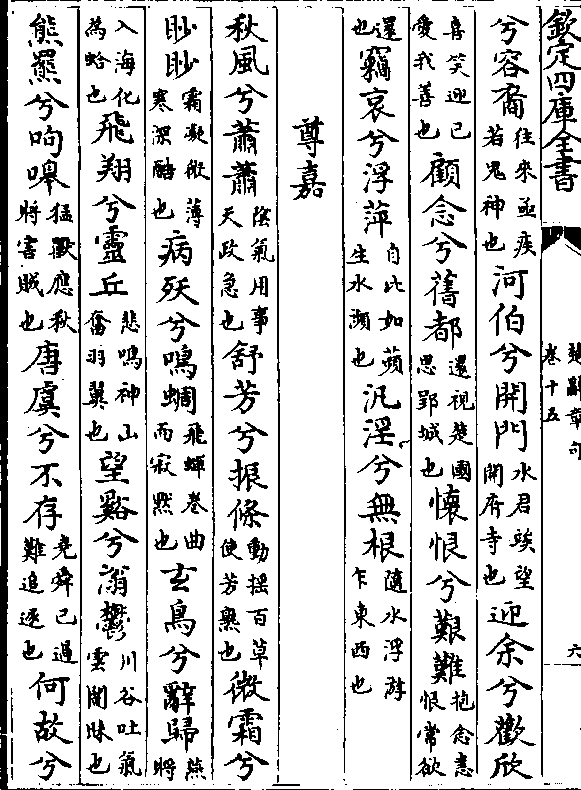 欽定四庫全書
楚辭章句
卷十五
六
兮容裔往來亟疾若鬼神也河伯兮開門水君竢望開府寺也迎余兮歡欣
喜笑迎已愛我善也顧念兮舊都還視楚國思郢城也懷恨兮艱難抱念恚恨常欲
還也竊哀兮浮萍自比如蘋生水瀕也汎淫兮無根隨水浮游乍東西也
尊嘉
秋風兮蕭蕭陰氣用事天政急也舒芳兮振條動搖百草使芳熟也微霜兮
眇眇霜凝微薄寒深酷也病殀兮鳴蜩飛蟬卷曲而寂黙也玄鳥兮辭歸燕將
入海化為蛤也飛翔兮靈丘悲鳴神山奮羽翼也望谿兮滃鬱川谷吐氣雲闇昧也
熊羆兮呴嘷猛獸應秋將害賊也唐虞兮不存堯舜已過難追逐也何故兮